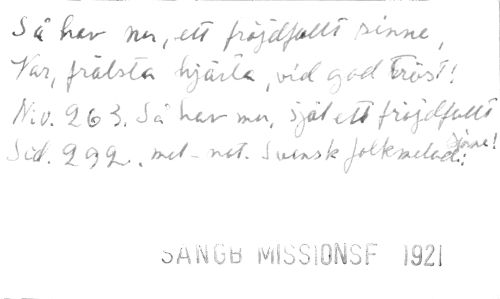 Så hav nu, ett fröjdfullt sinne,
Var, frälsta hjärta, vid god tröst!
N:o. 263. Så hav nu, själ ett fröjdfullt
sinne!
Sid. 292. mel-not. Svensk folkmelod:
SÅNGB MISSIONSF 1921